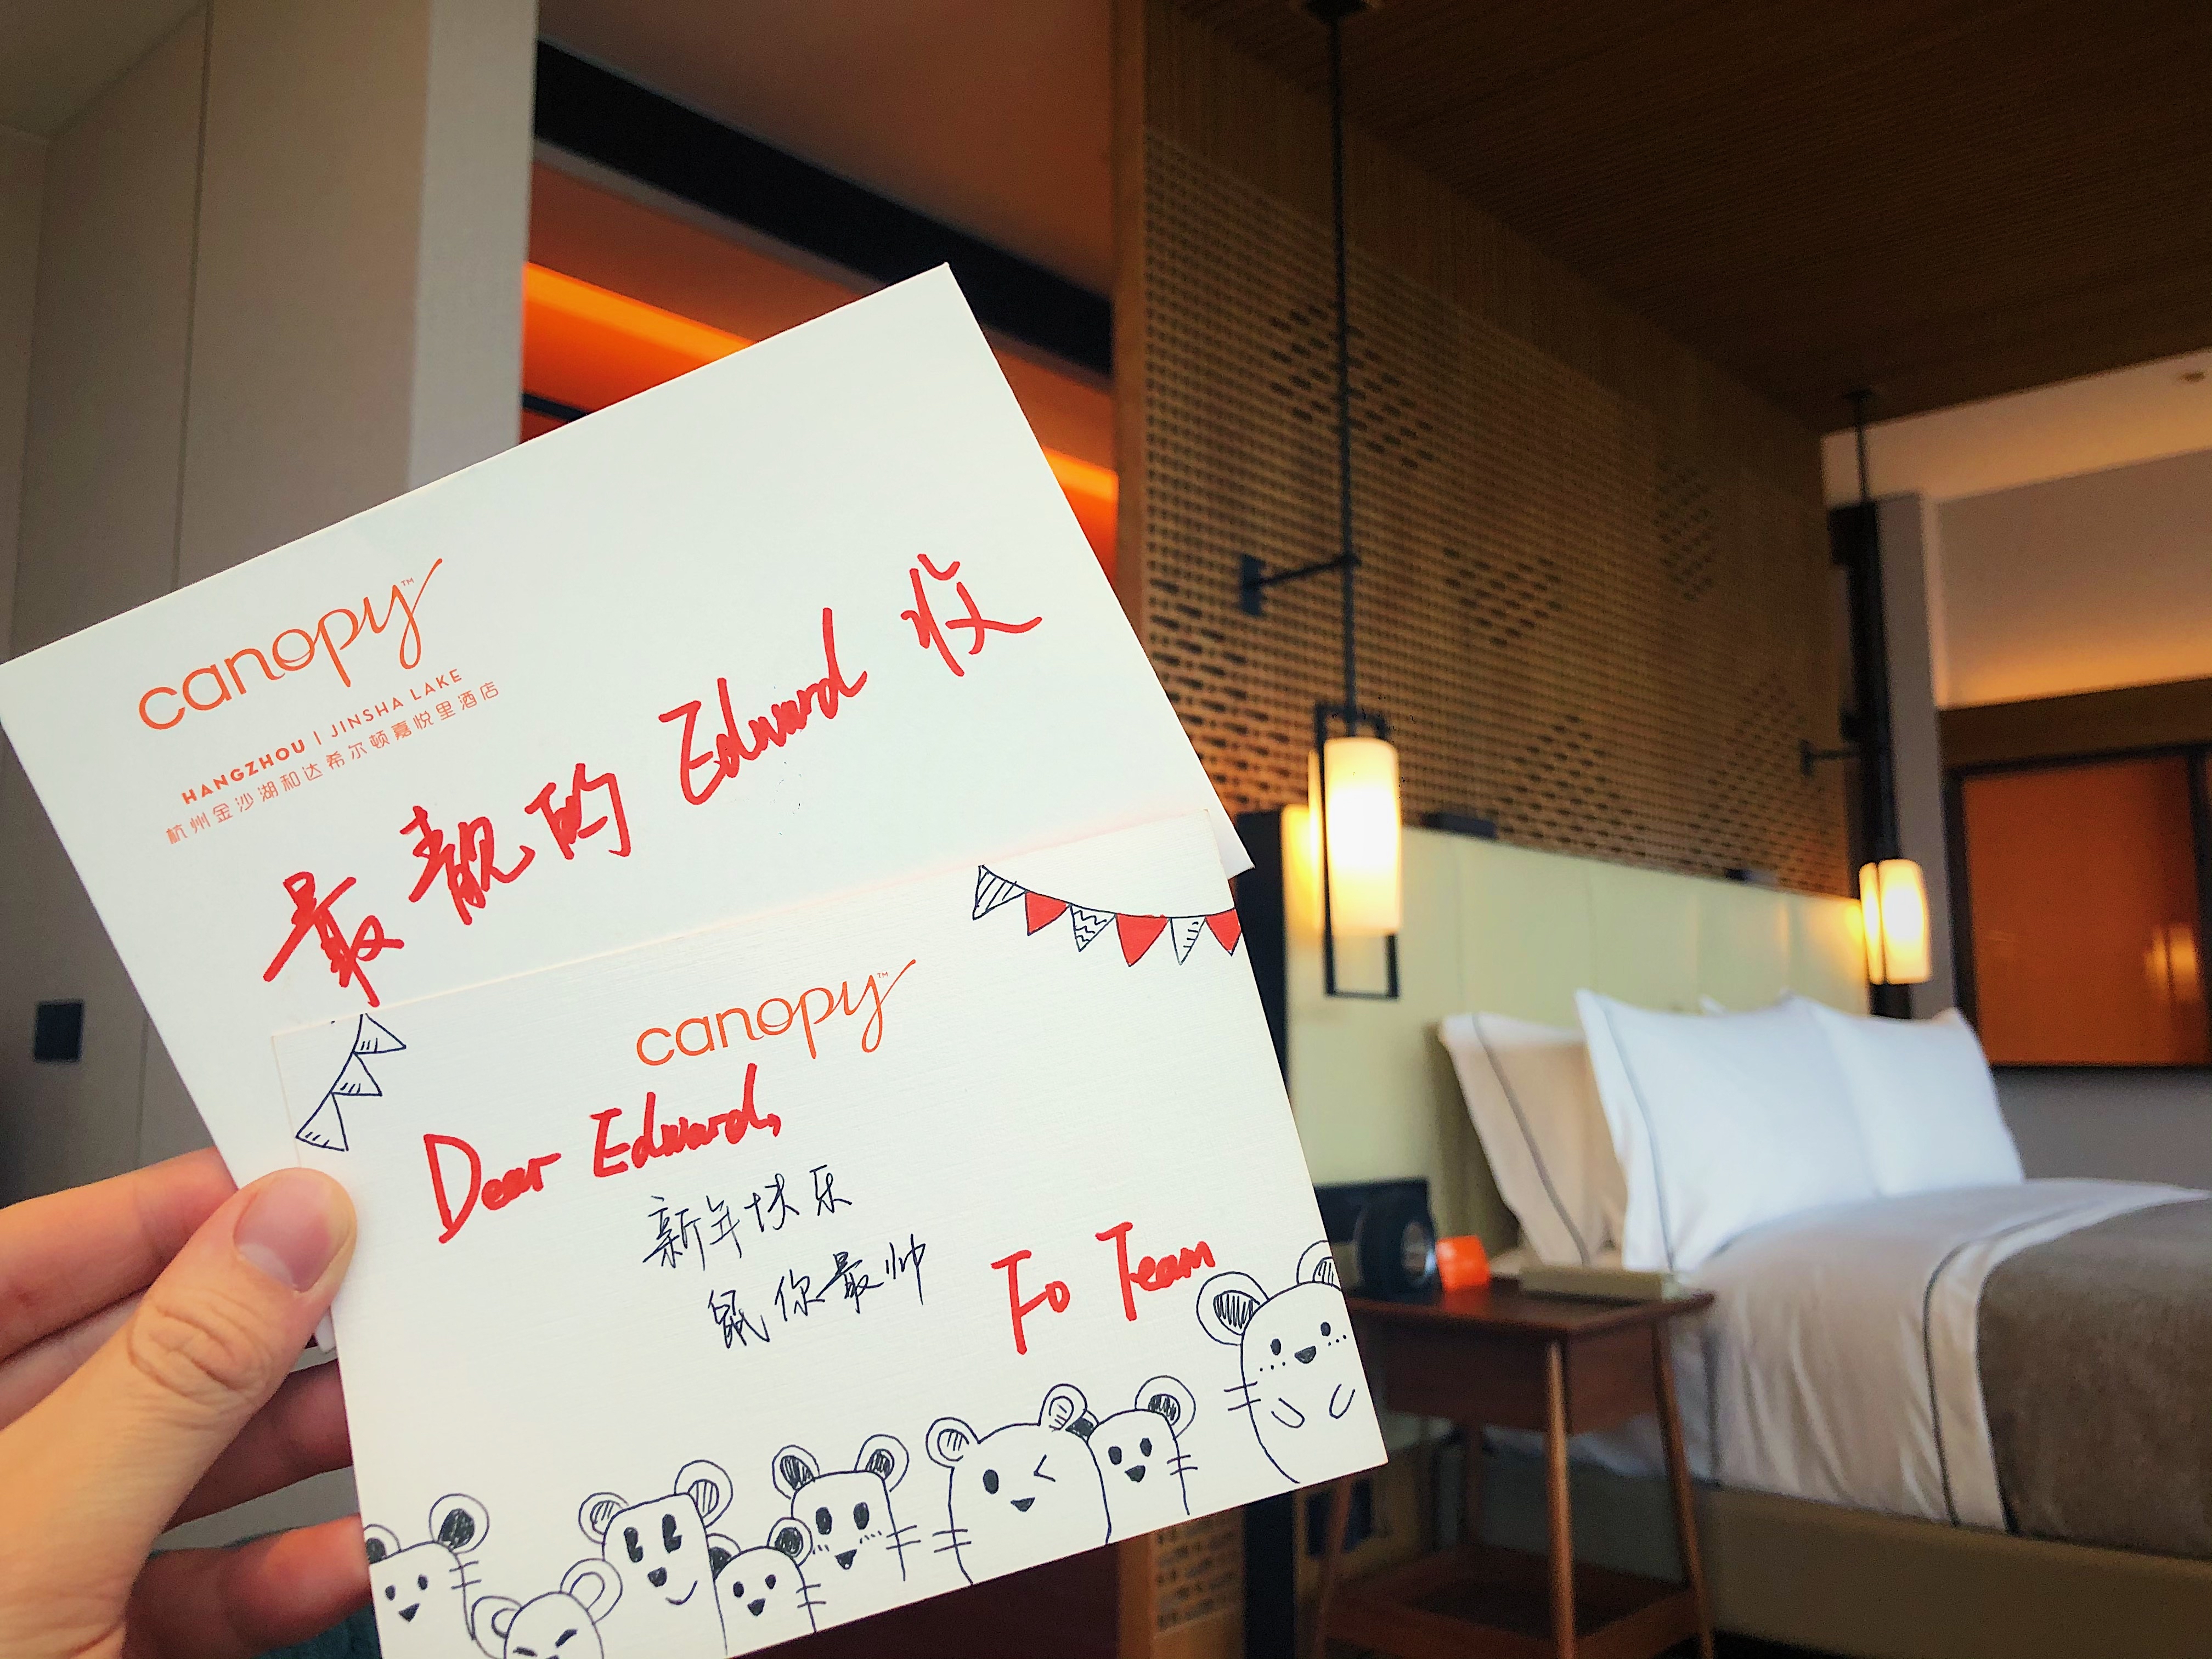 canopy™
HANGZHOU | JINSHA LAKE
杭州金沙湖和达希尔顿嘉悦里酒店
最靓的 Edward 收
canopy™
Dear Edward,
新年快乐
鼠你最帅
Fo Team